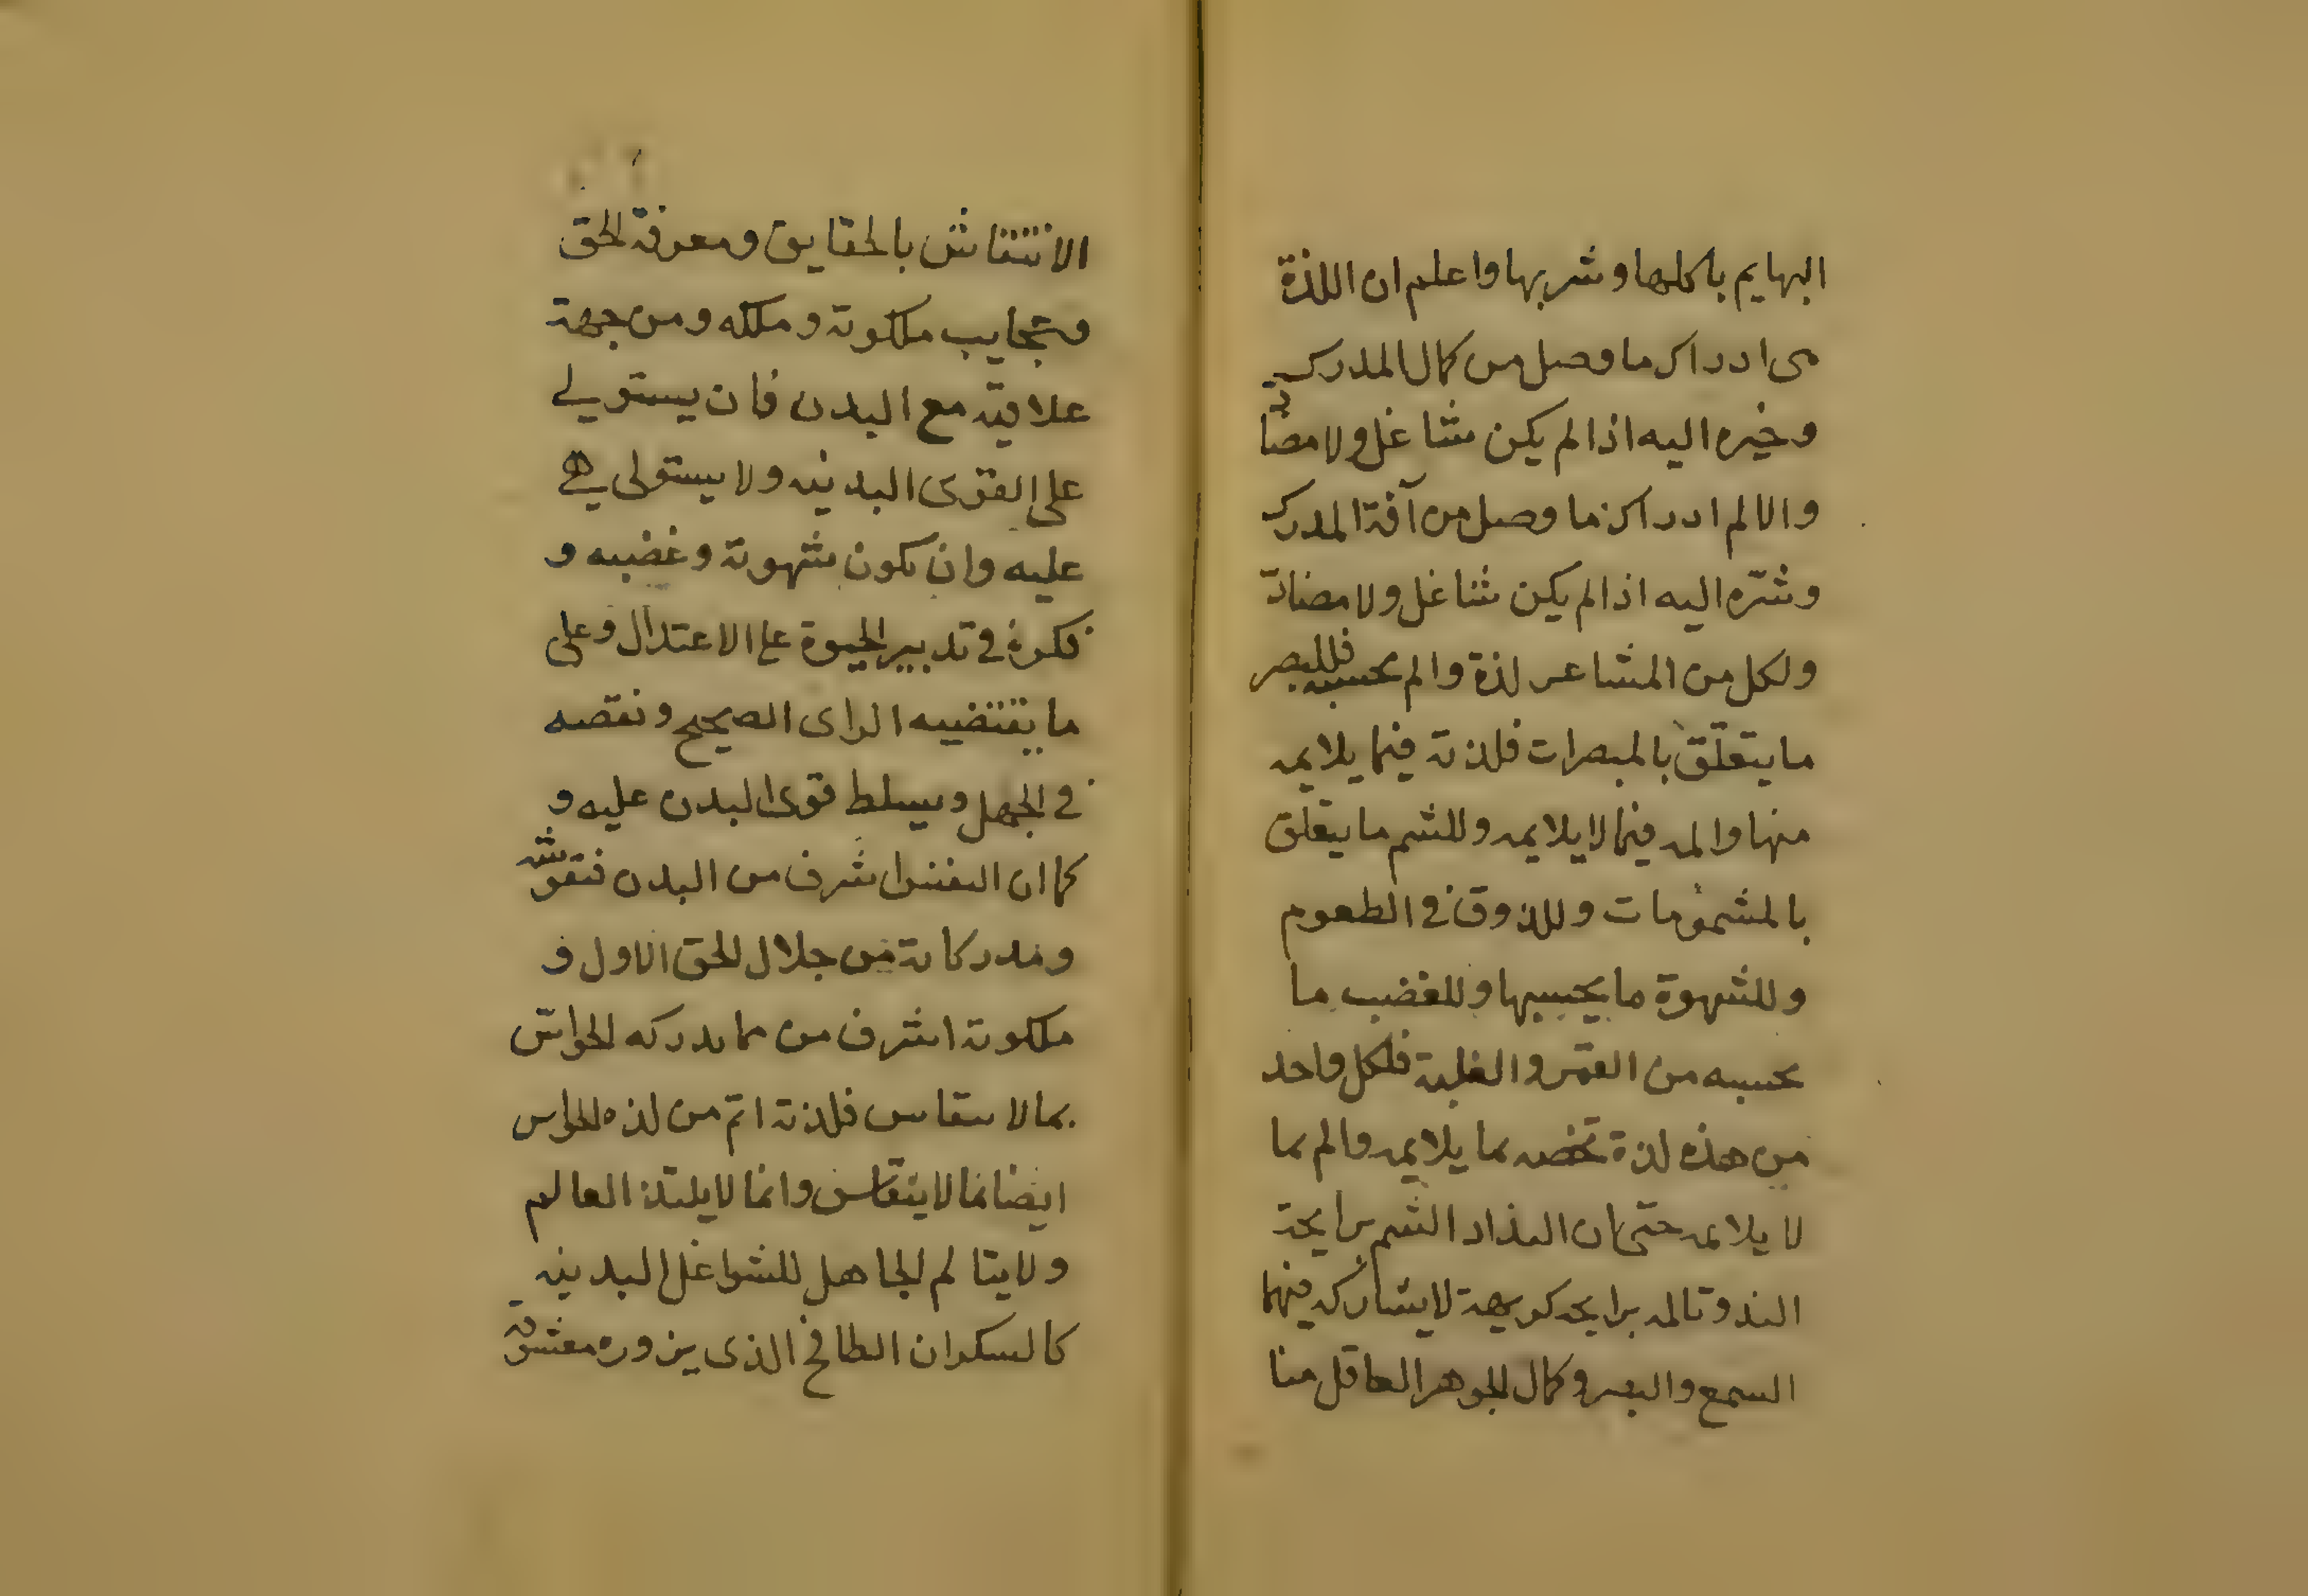 البهايم باكلها وشربها واعلم ان اللذة
هى ادراك ما وصل من كمال المدرك
وخيره اليه اذا لم يكن شاغل ولا مضاد
والالم ادراك ما وصل من آفة المدرك
وشرّه اليه اذا لم يكن شاغل ولا مضادّ
ولكل من المشاعر لذة والم بحسبه فللبصر
ما يتعلّق بالمبصرات فلذته فيما يلايمه
منها والمه فيما لا يلايمه وللشم ما يتعلق
بالمشمومات وللذوق فى الطعوم
وللشهوة ما بحسبها وللغضب ما
بحسبه من القهر والغلبة فلكل واحد
من هذه لذة تخصه بما يلايمه والم بما
لا يلايمه حتى ان التذاذ الشم برايحة
الند وتالمه برايحه كريهة لا يشاركه فيهما
السمع والبصر وكمال الجوهر العاقل منا
الانتقاش بالحقايق ومعرفة الحق
وعجايب ملكوته وملكه ومن جهة
علاقته مع البدن فان يستولى
على القوى البدنيه ولا يستولى هى
عليه وان يكون شهوته وغضبه و
فكره فى تدبير الحيوة على الاعتدال وعلى
ما يقتضيه الراى الصحيح ونقصه
فى الجهل ويسلط قوى البدن عليه و
كما ان النفس اشرف من البدن فنقوشه
ومدركاته من جلال الحق الاول و
ملكوته اشرف من مما يدركه الحواسّ
بما لا يقاس فلذته اتم من لذه الحواس
ايضا بما لا يقاس وانما لا يلتذ العالم
ولا يتالم الجاهل للشواغل البدنيه
كالسكران الطافح الذى يزوره معشوقه